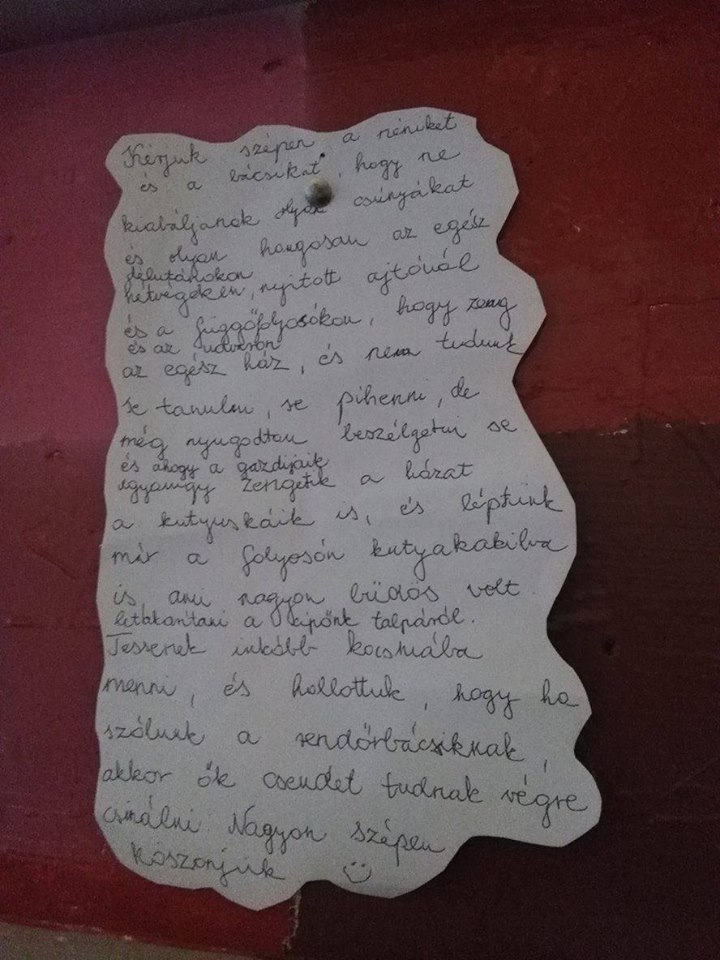 Kérjük szépen a néniket
és a bácsikat, hogy ne
kiabáljanak olyan csúnyákat
és olyan hangosan az egész
délutánokon
hétvégéken, nyitott ajtónál
és a függőfolyosókon, hogy zeng
és az udvaron
az egész ház, és nem tudunk
se tanulni, se pihenni, de
még nyugodtan beszélgetni se
és ahogy a gazdijaik
ugyanúgy zengetik a házat
a kutyuskáik is, és léptünk
már a folyosón kutyakakilva
is, ami nagyon büdös volt
letakarítani a cipőnk talpáról.
Tessenek inkább kocsmába
menni, és hallottuk, hogy ha
szólunk a rendőrbácsiknak,
akkor ők csendet tudnak végre
csinálni. Nagyon szépen
köszönjük